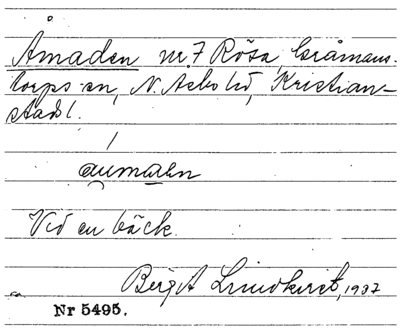 Åmaden nr 7 Rösa, Gråmans-
torps sn, N. Åsbo hd, Kristian-
stads l.
aumaən
Vid en bäck.
Birgit Lindkvist, 1937
Nr 5495.